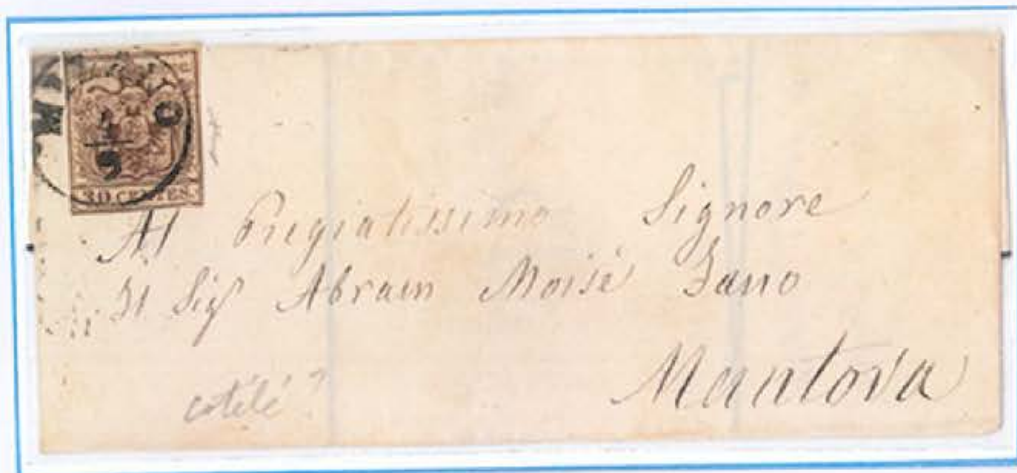 30 CENTES.
Al Pregiatissimo Signore
Il Sigr Abram Moisè Fano
Mantova
cotelé?